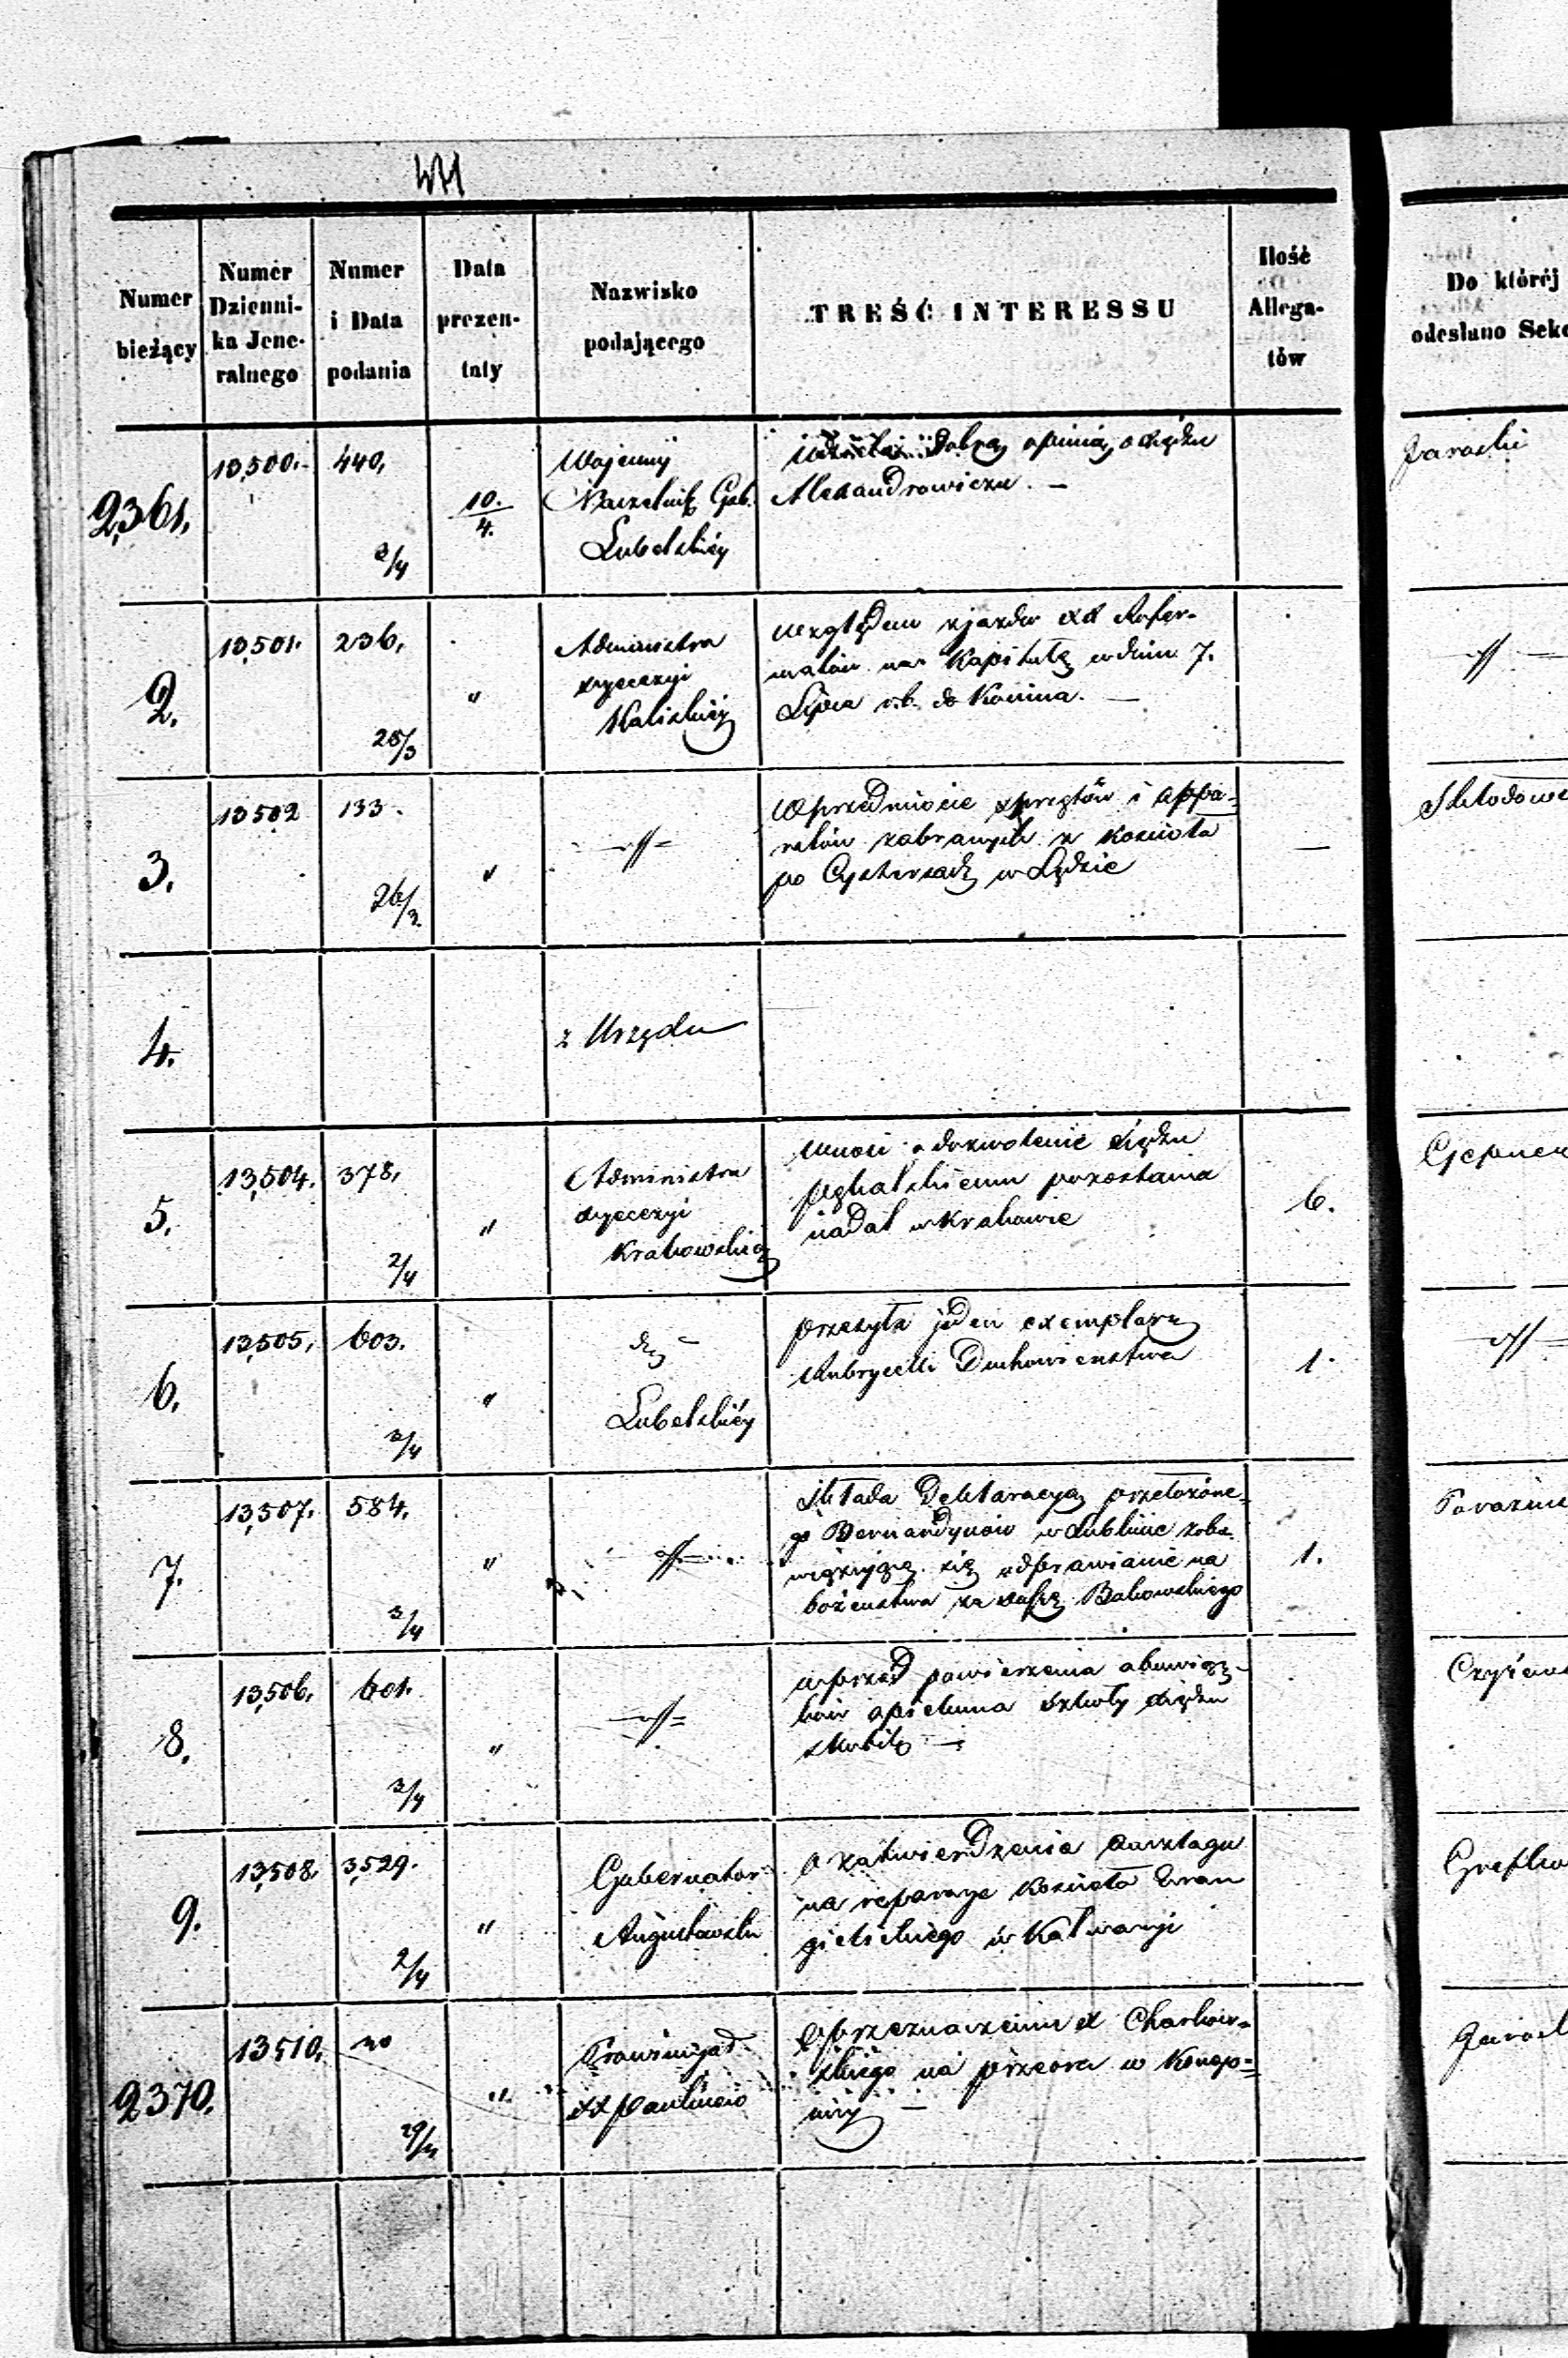 471
Numer bieżący
Numer Dzienni-ka Jene-ralnego
Numer i Data podania
Data prezen-taty
Nazwisko podającego
TREŚĆ INTERESSU
Ilość Allega-tów
Do którėj odesłano Sekc
2361.
13,500.
440,
2/4
10./4.
Wojenny
Naczelnik Gub.
Lubelskiéy
Udziela dobrą opinią o Xiędzu
Alexandrowiczu. —
Jaroski
2.
13,501.
236,
28/3
"
Administra
dyecezyi
Kaliskiéy
względem zjazdu XX Refor-
matów na Kapitułę w dniu 7.
Lipca r.b. do Konina. —
-//-
3.
13502
133.
26/3.
"
-//-
W przedmiocie sprzętów i appa-
ratów zabranych z kościoła
po Cystersach w Lądzie
—
Skłodow
4.
z Urzędu
5.
13,504.
378,
2/4
"
Administra
dyecezyi
Krakowskiéy
wnosi o dozwolenie Xiędzu
pozostania
nadal w Krakowie
6.
6.
13,505,
603.
3/4
"
Lubelskiéy
przesyła jeden exemplarz
Rubrycelli Duchowieństwa
1.
-//-
7.
13,507.
584,
3/4
"
-//-
składa Deklaracyą przełożone-
go Bernardynów w Lublinie zobo-
wiązującą się odprawianie na
bożeństwa za duszę Bakowskiego
1.
8.
13,506,
601.
3/4
"
-//-
w przed powierzenia obowiąz-
ków opiekuna szkoły Xiędzu
9.
13,508.
3,529.
2/4
"
Gubernator
Augustowski
O zatwierdzenie anszlagu
na reparacye kościoła Ewan
gielickiego w Kalwaryi
2370.
13510,
20
29/
"
Prowincyał
XX Paulinów
O przeznaczeniu X
skiego na przeora w Konop-
nicy —